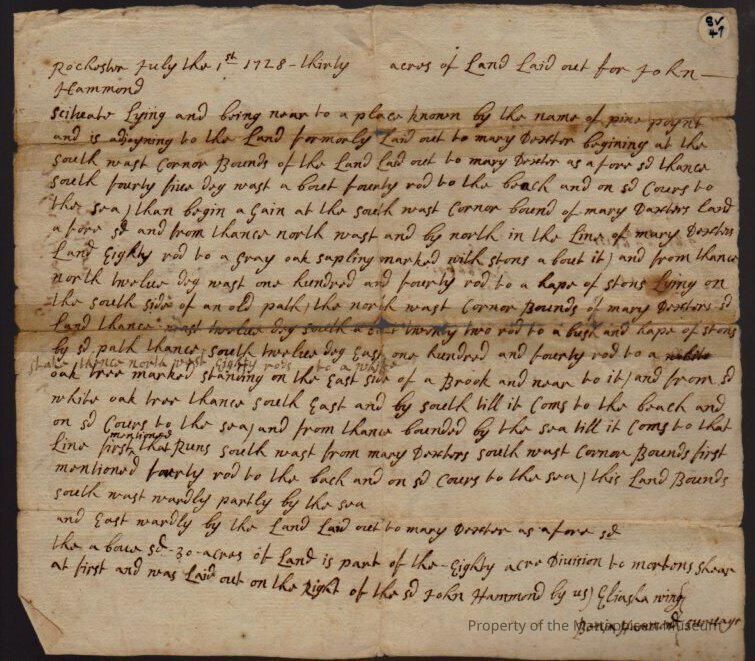 8v
47
Rochester July the 1st 1728 - thirty acres of Land Laid out for John
Hammond
scituate Lying and being near to a place known by the name of pine poynt
and is adjoyning to the Land formorly Laid out to mary Dexter begining at the
south wast Cornor Bounds of the Land Laid out to mary Dexter as afore sd thance
south fourty fiue deg wast a bout fourty rod to the beach and on sd Cours to
the sea) than begin a Gain at the south wast Cornor bound of mary Daxters land
a fore sd and from thance north wast and by north in the Line of mary Dexters
Land Eighty rod to a gray oak sapling marked with stons a bout it) and from thance
north twelue deg wast one hundred and fourty rod to a hape of stons Lying on
the south side of an old path) the north wast Cornor Bounds of mary Dexters sd
Land thance wast twelue deg south a bout twenty two rod to a bush and hape of stons
by sd path thance south twelue deg East one hundred and fourty rod to a white
stake thence north west Eighty rods to a white
oak tree marked standing on the East side of a Brook and near to it) and from sd
white oak tree thance south East and by south till it Coms to the beach and
on sd Cours to the sea) and from thance bounded by the sea till it Coms to that
mentioned
Line first that Runs south wast from mary Dexters south wast Cornor Bounds first
mentioned fourty rod to the bach and on sd Cours to the sea) this Land Bounds
south wast wardly partly by the sea
and East wardly by the Land Laid out to mary Dexter as afore sd
the aboue sd - 30 - acres of Land is part of the - Eighty acre Division to mortons shear
at first and was Laid out on the Right of the sd John Hammond by us) Eliasha wing
Property of the Mattapoisett Museum
Hammond survays